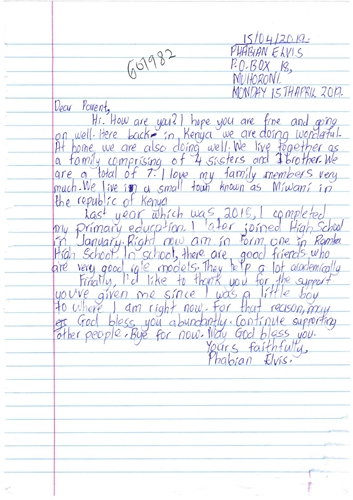 15/04/2019.
PHABIAN ELVIS
P.O.BOX 18,
MUHORONI
MONDAY 15TH APRIL 2019.
601982
Dear Parent,
Hi. How are you? I hope you are fine and going
on well. Here back in, Kenya we are doing wonderful.
At home, we are also doing well. We live together as
a family comprising of 4 sisters and brother. We
are a total of 7. I love my family members very
much. We live in a small town known as Miwani in
the republic of Kenya
Last year which was 2018, I completed
my primary education. I later joined High School
in January. Right now am in form one in Ramba
High School. In school, there are good friends who
are very good role models. They help a lot academically
Finally, I'd like to thank you for the support
you've given me since I was a little boy
to where I am right now. For that reason, may
God bless you abundantly. Continue supporting
other people. Bye for now. May God bless you.
Yours faithfully,
Phabian Elvis.